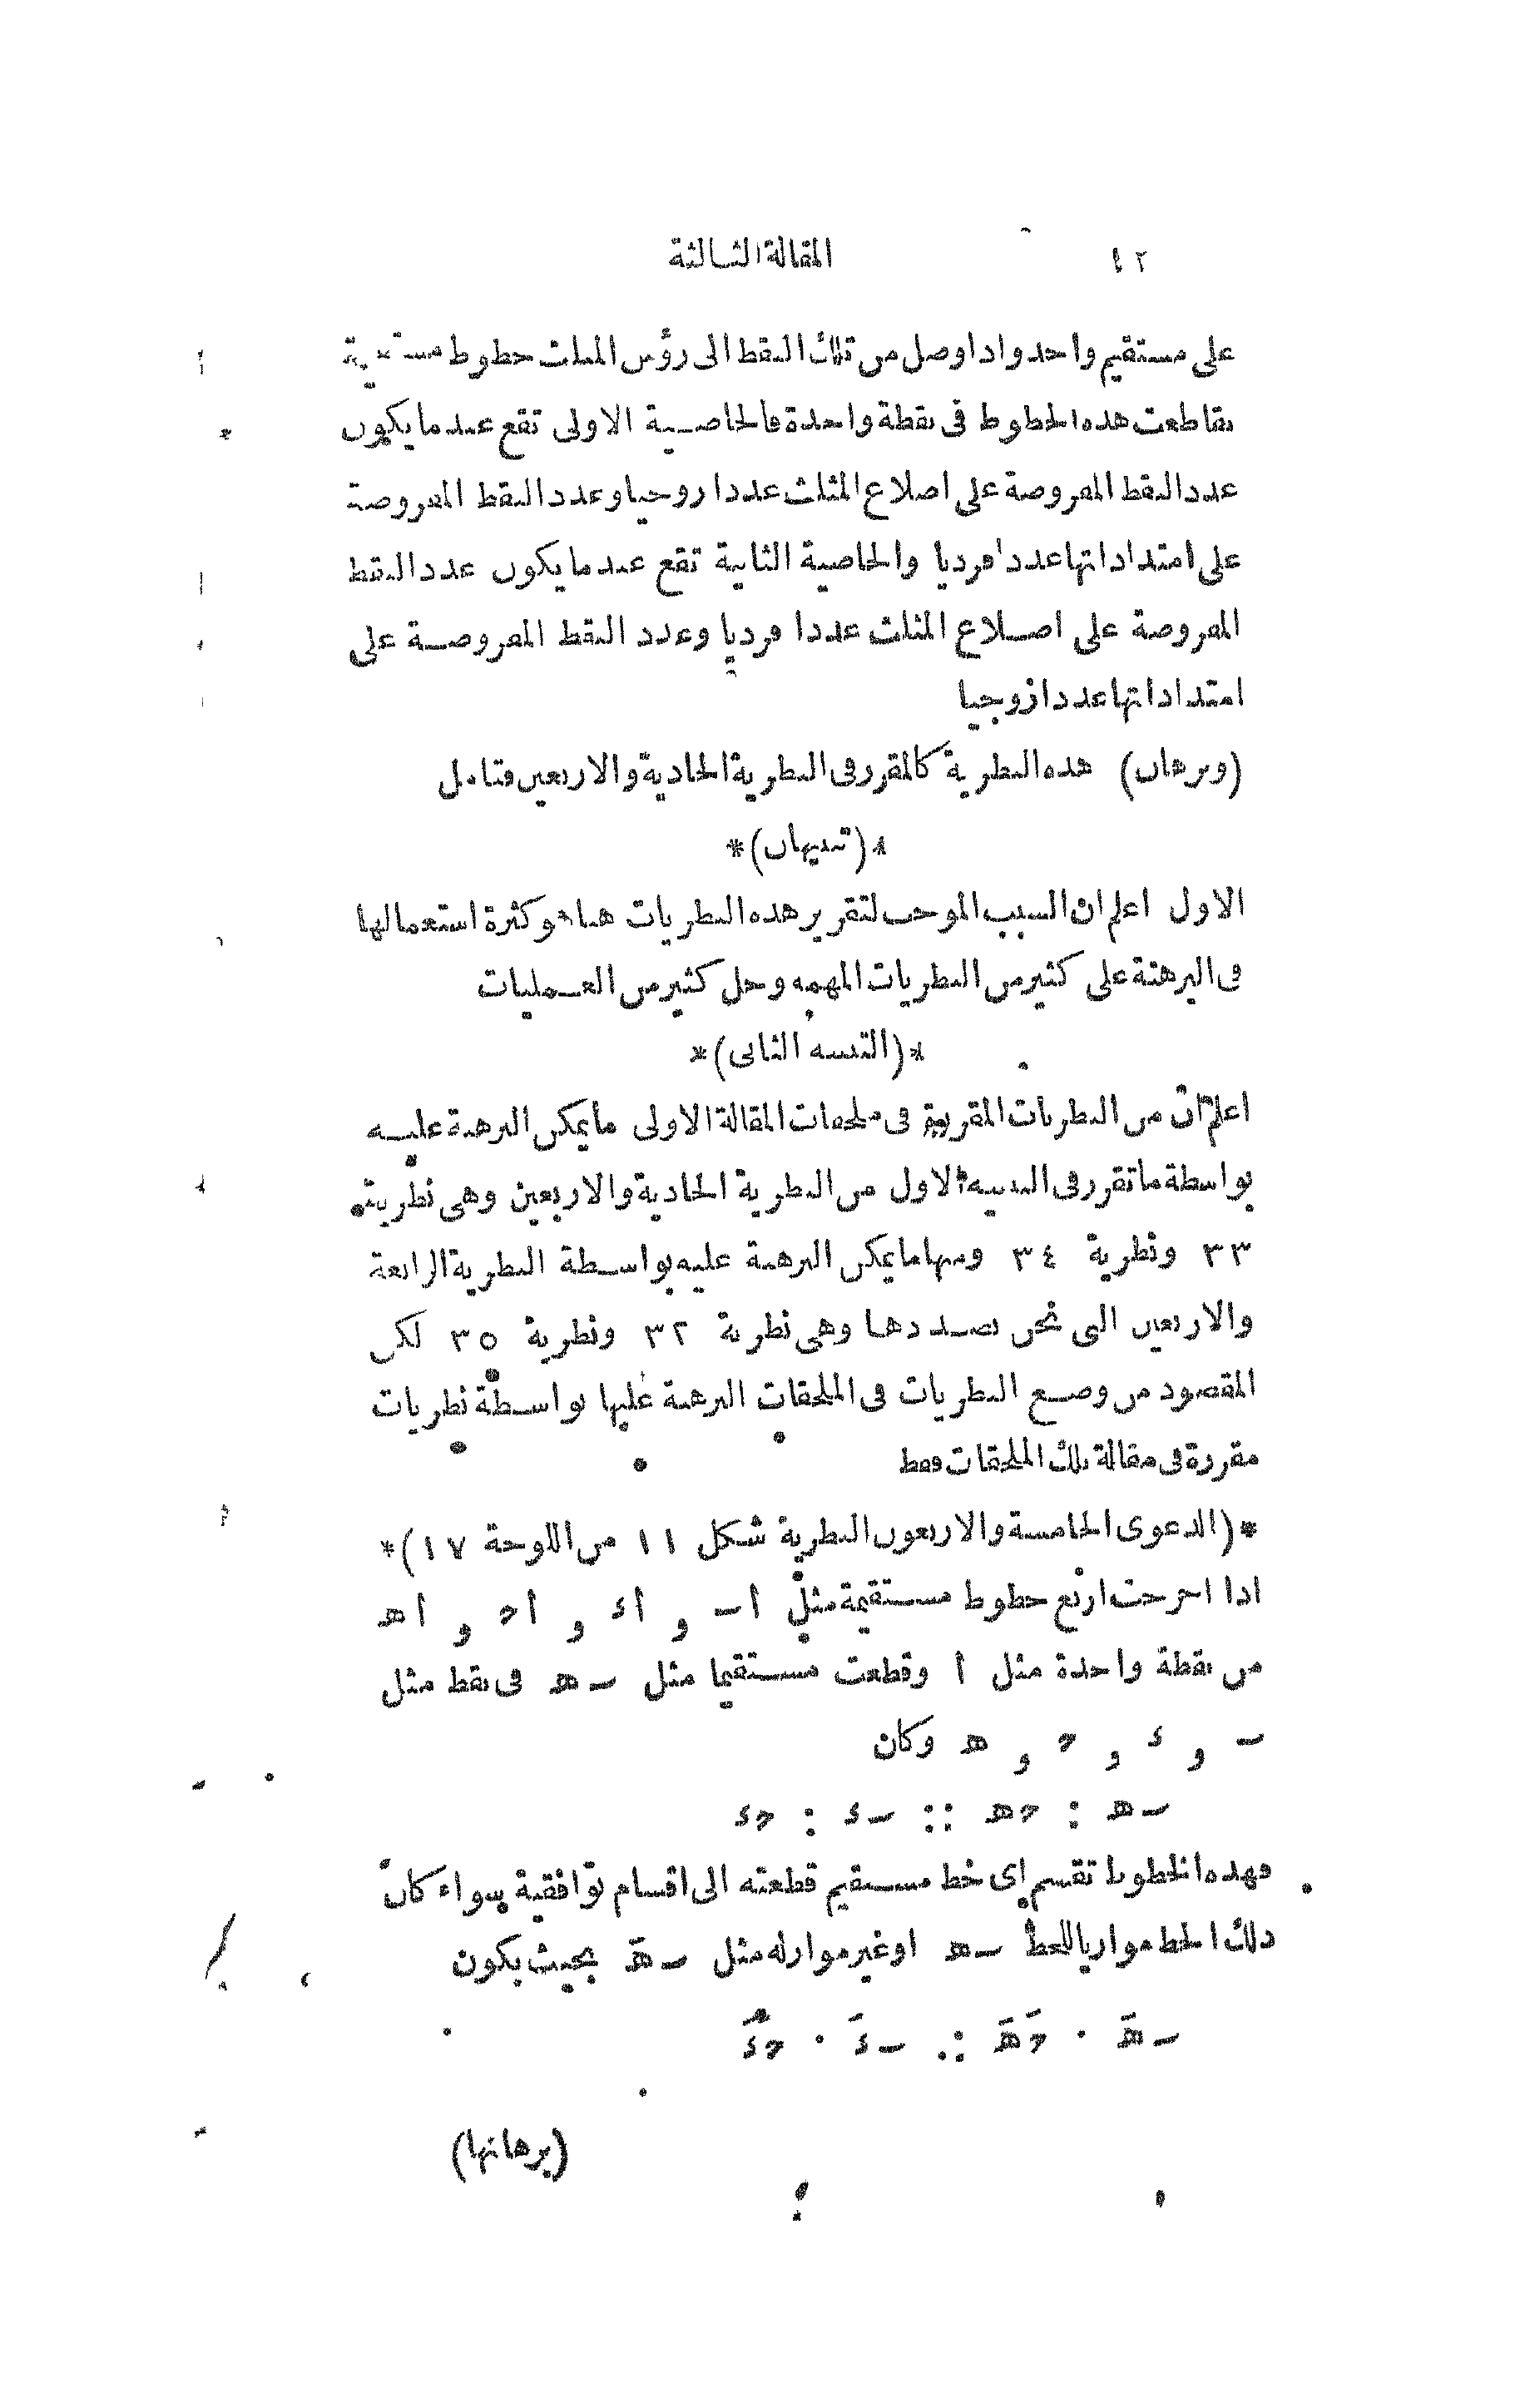 ٤٢ المقالة الثالثة
على مستقيم واحد واذا وصل من تلك النقط الى رؤس المثلث خطوط مستقيمة
تقاطعت هذه الخطوط فى نقطة واحدة فالخاصية الاولى تقع عند ما يكون
عدد النقط المفروضة على اضلاع المثلث عددا زوجيا وعدد النقط المفروضة
على امتداداتها عددا فرديا والخاصية الثانية تقع عند ما يكون عدد النقط
المفروضة على اضلاع المثلث عددا فرديا وعدد النقط المفروضة على
امتداداتها عددا زوجيا
(وبرهان) هذه النظرية كالمقرر فى النظرية الحادية والاربعين فتامل
*(تنبيهان)*
الاول اعلم ان السبب الموجب لتقرير هذه النظريات هنا هو كثرة استعمالها
فى البرهنة على كثير من النظريات المهمه وحل كثير من العمليات
*(التنبيه الثانى)*
اعلم ان من النظريات المقررة فى ملحقات المقالة الاولى ما يمكن البرهنة عليه
بواسطة ما تقرر فى التنبيه الاول من النظرية الحادية والاربعين وهى نظرية
٣٣ ونظرية ٣٤ ومنها ما يمكن البرهنة عليه بواسطة النظرية الرابعة
والاربعين التى نحن بصددها وهى نظرية ٣٢ ونظرية ٣٥ لكن
المقصود من وضع النظريات فى الملحقات البرهنة عليها بواسطة نظريات
مقررة فى مقالة تلك الملحقات فقط
*(الدعوى الخامسة والاربعون النظرية شكل ١١ من اللوحة ١٧)*
اذا اخرجت اربع خطوط مستقيمة مثل اب و اء و اح و اهـ
من نقطة واحدة مثل ا وقطعت مستقيما مثل ب هـ فى نقط مثل
ب و ء و ح و هـ وكان
ب هـ : ح هـ :: ب ء : ح ء
فهذه الخطوط تقسم اى خط مستقيم قطعته الى اقسام توافقية سواء كان
ذلك الخط موازيا للخط ب هـ او غير مواز له مثل ب هَـ بحيث يكون
ب هَـ : حَ هَـ :: ب ءَ : حَ ءَ
(برهانها)